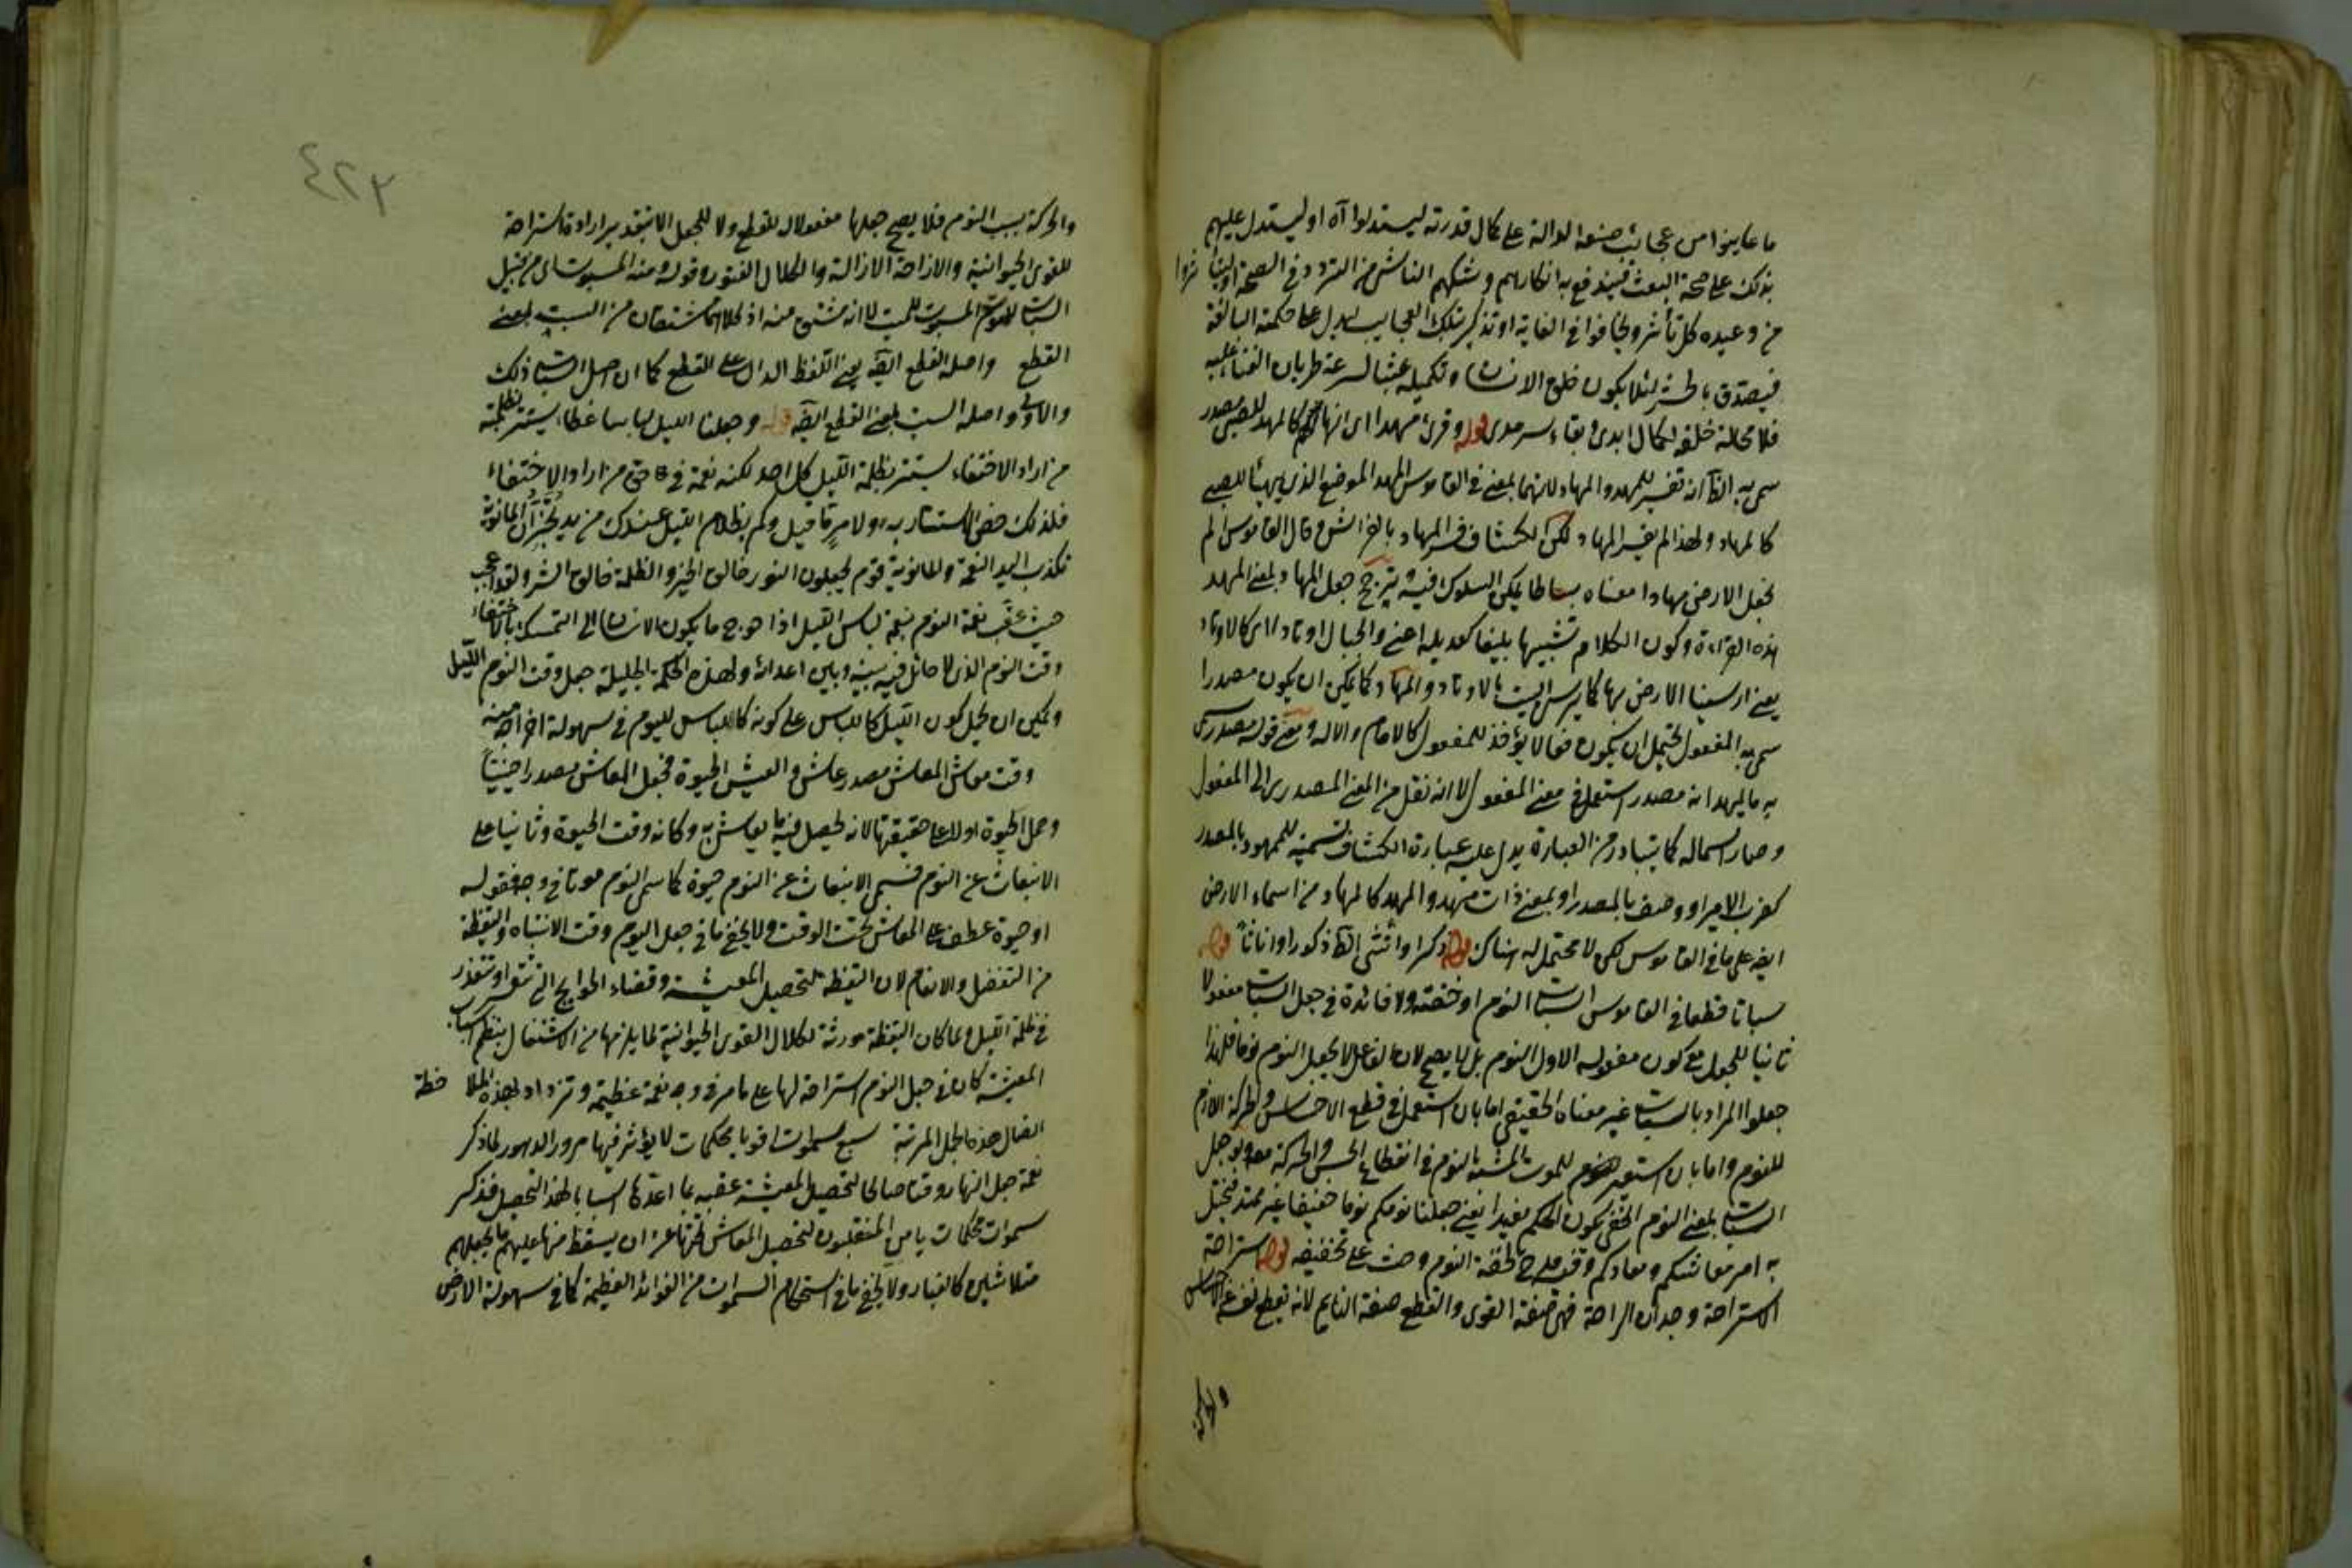 ما عاينوا من عجائب صنعه الدالة على كمال قدرته ليستدلوا آه او ليستدل عليهم
بذلك على صحة البعث فيندفع به انكارهم وشكهم الناشئ من التردد في الصحة او لينزجروا
من وعيده كل تأثر ويخافوا في الغاية او تذكير بتلك العجايب ليدل على حكمته البالغة
فيصدق بالحشر لئلا يكون خلق الانسان وتكميله عبثا لسرعة طريان الفناء عليه
فلا محالة خلقه لكمال ابدى وبقاء سرمدى قوله وقرئ مهدا اى انها لهم كالمهد للصبى مصدر
سمى به الظ انه تفسير للمهد والمهاد لانهما بمعنى في القاموس المهد الموضع الذى يهيأ للصبى
كالمهاد ولهذا لم يفسر المهاد لكن الكشاف فسر المهاد بالفراش وقال القاموس الم
نجعل الارض مهادا معناه بساطا يمكن السلوك فيه يترجح جعل المهاد بمعنى المهد
هذه القراءة وكون الكلام تشبيها بليغا كعديله اعنى والجبال اوتادا اى كالاوتاد
يعنى ارسينا الارض بها كما يرسى البيت بالاوتاد والمهاد كما يمكن ان يكون مصدرا
سمى به المفعول يحتمل ان يكون فعالا يؤخذ للمفعول كالامام والاله ومعنى قوله مصدر سمى
به ما يمهد انه مصدر استعمل في معنى المفعول لا انه نقل من المعنى المصدرى الى المفعول
وصار اسما له كما يتبادر من العبارة يدل عليه عبارة الكشاف تسمية للممهود بالمصدر
كضرب الامير او وصف بالمصدر او بمعنى ذات مهد والمهد كالمهاد من اسماء الارض
ايضا على ما في القاموس لكن لا محتمل له هناك قوله ذكرا وانثى الظ ذكورا واناثا قوله
سباتا قطعا في القاموس السبات النوم او خفته ولا فائدة في جعل السبات مفعولا
ثانيا للجعل مع كون مفعوله الاول النوم بل لا يصح لان الفاعل لا يجعل النوم نوما فلهذا
جعلوا المراد بالسبات غير معناه الحقيقى اما بان استعمل في قطع الاحساس والحركة اللازم
للنوم واما بان استعير للموت المشبه بالنوم في انقطاع الحس والحركة معه ولو جعل
السبات بمعنى النوم الخفى يكون الحكم مفيدا يعنى جعلنا نومكم نوما خفيفا غير ممتد فيختل
به امر معاشكم ومعادكم وفيه مدح لخفة النوم وحث على تخفيفه قوله استراحة
الاستراحة وجدان الراحة فهى صفة القوى والقطع صفة النايم لانه يقطع نفسه عن الاحساس
والحركة
٤٢٣
والحركة بسبب النوم فلا يصح جعلها مفعولا له للقطع ولا للجعل الا بتقدير ارادة استراحة
للقوى الحيوانية والازاحة الازالة والكلال الفتور وقوله ومنه المسبوت اى من قبيل
السبات للموت المسبوت للميت لا انه مشتق منه اذ كلاهما مشتقان من السبت بمعنى
القطع واصله القطع ايضا يعنى اللفظ الدال على القطع كما ان اصل السبات ذلك
والاولى واصله السبت بمعنى القطع ايضا قوله وجعلنا الليل لباسا غطاء يستتر بظلمته
من اراد الاختفاء يستتر بظلمة الليل كل احد لكنه نعمة في حق من اراد الاختفاء
فلذلك خص الاستتار به ولامر ما قيل وكم لظلام الليل عندك من يد تخبر ان المانوية
تكذب اليد النعمة والمانوية قوم يجعلون النور خالق الخير والظلمة خالق الشر ولقد اعجب
حيث عقب نعمة النوم بنعمة لباس الليل اذا هو احوج ما يكون الانسان الى التمسك بالاختفاء
وقت النوم الذى لا حائل فيه بينه وبين اعدائه ولهذه الحكمة الجليلة جعل وقت النوم الليل
ويمكن ان يحمل كون الليل كاللباس على كونه كاللباس لليوم في سهولة اخراجه منه
وقت معاش المعاش مصدر عاش والعيش الحيوة فجعل المعاش مصدرا حينيا
وحمل الحيوة اولا على حقيقتها لانه يحصل فيه ما يعاش به وكانه وقت الحيوة وثانيا على
الانبعاث عن النوم فسمى الانبعاث عن النوم حيوة كما سمى النوم موتا في وجه فقوله
او حيوة عطف على المعاش تحت الوقت ولا يخفى ما في جعل اليوم وقت الانتباه واليقظة
من التفضل والانعام لان اليقظة لتحصيل المعيشة وقضاء الحوايج التى تتعسر او تتعذر
في ظلمة الليل ولما كان اليقظة مورثة لكلال القوى الحيوانية لما يلزمها من الاشتغال بنظم اسباب
المعيشة كان في جعل النوم استراحة لها على ما مر في وجه نعمة عظيمة وتزداد لهذه الملاحظة
اتصال هذه الجمل المرتبة سبع سموات اقويا محكمات لا يؤثر فيها مرور الدهور لما ذكر
نعمة جعل النهار وقتا صالحا لتحصيل المعيشة عقبه بما اعد لها اسبابا لهذا التحصيل فذكر
سموات محكمات يا من المنقلبون لتحصيل المعاش تحتها عن ان يسقط منها عليهم ما يجعلهم
متلاشين كالغبار ولا يخفى ما في استحكام السموات من الفوائد العظيمة كما في سهولة الارض